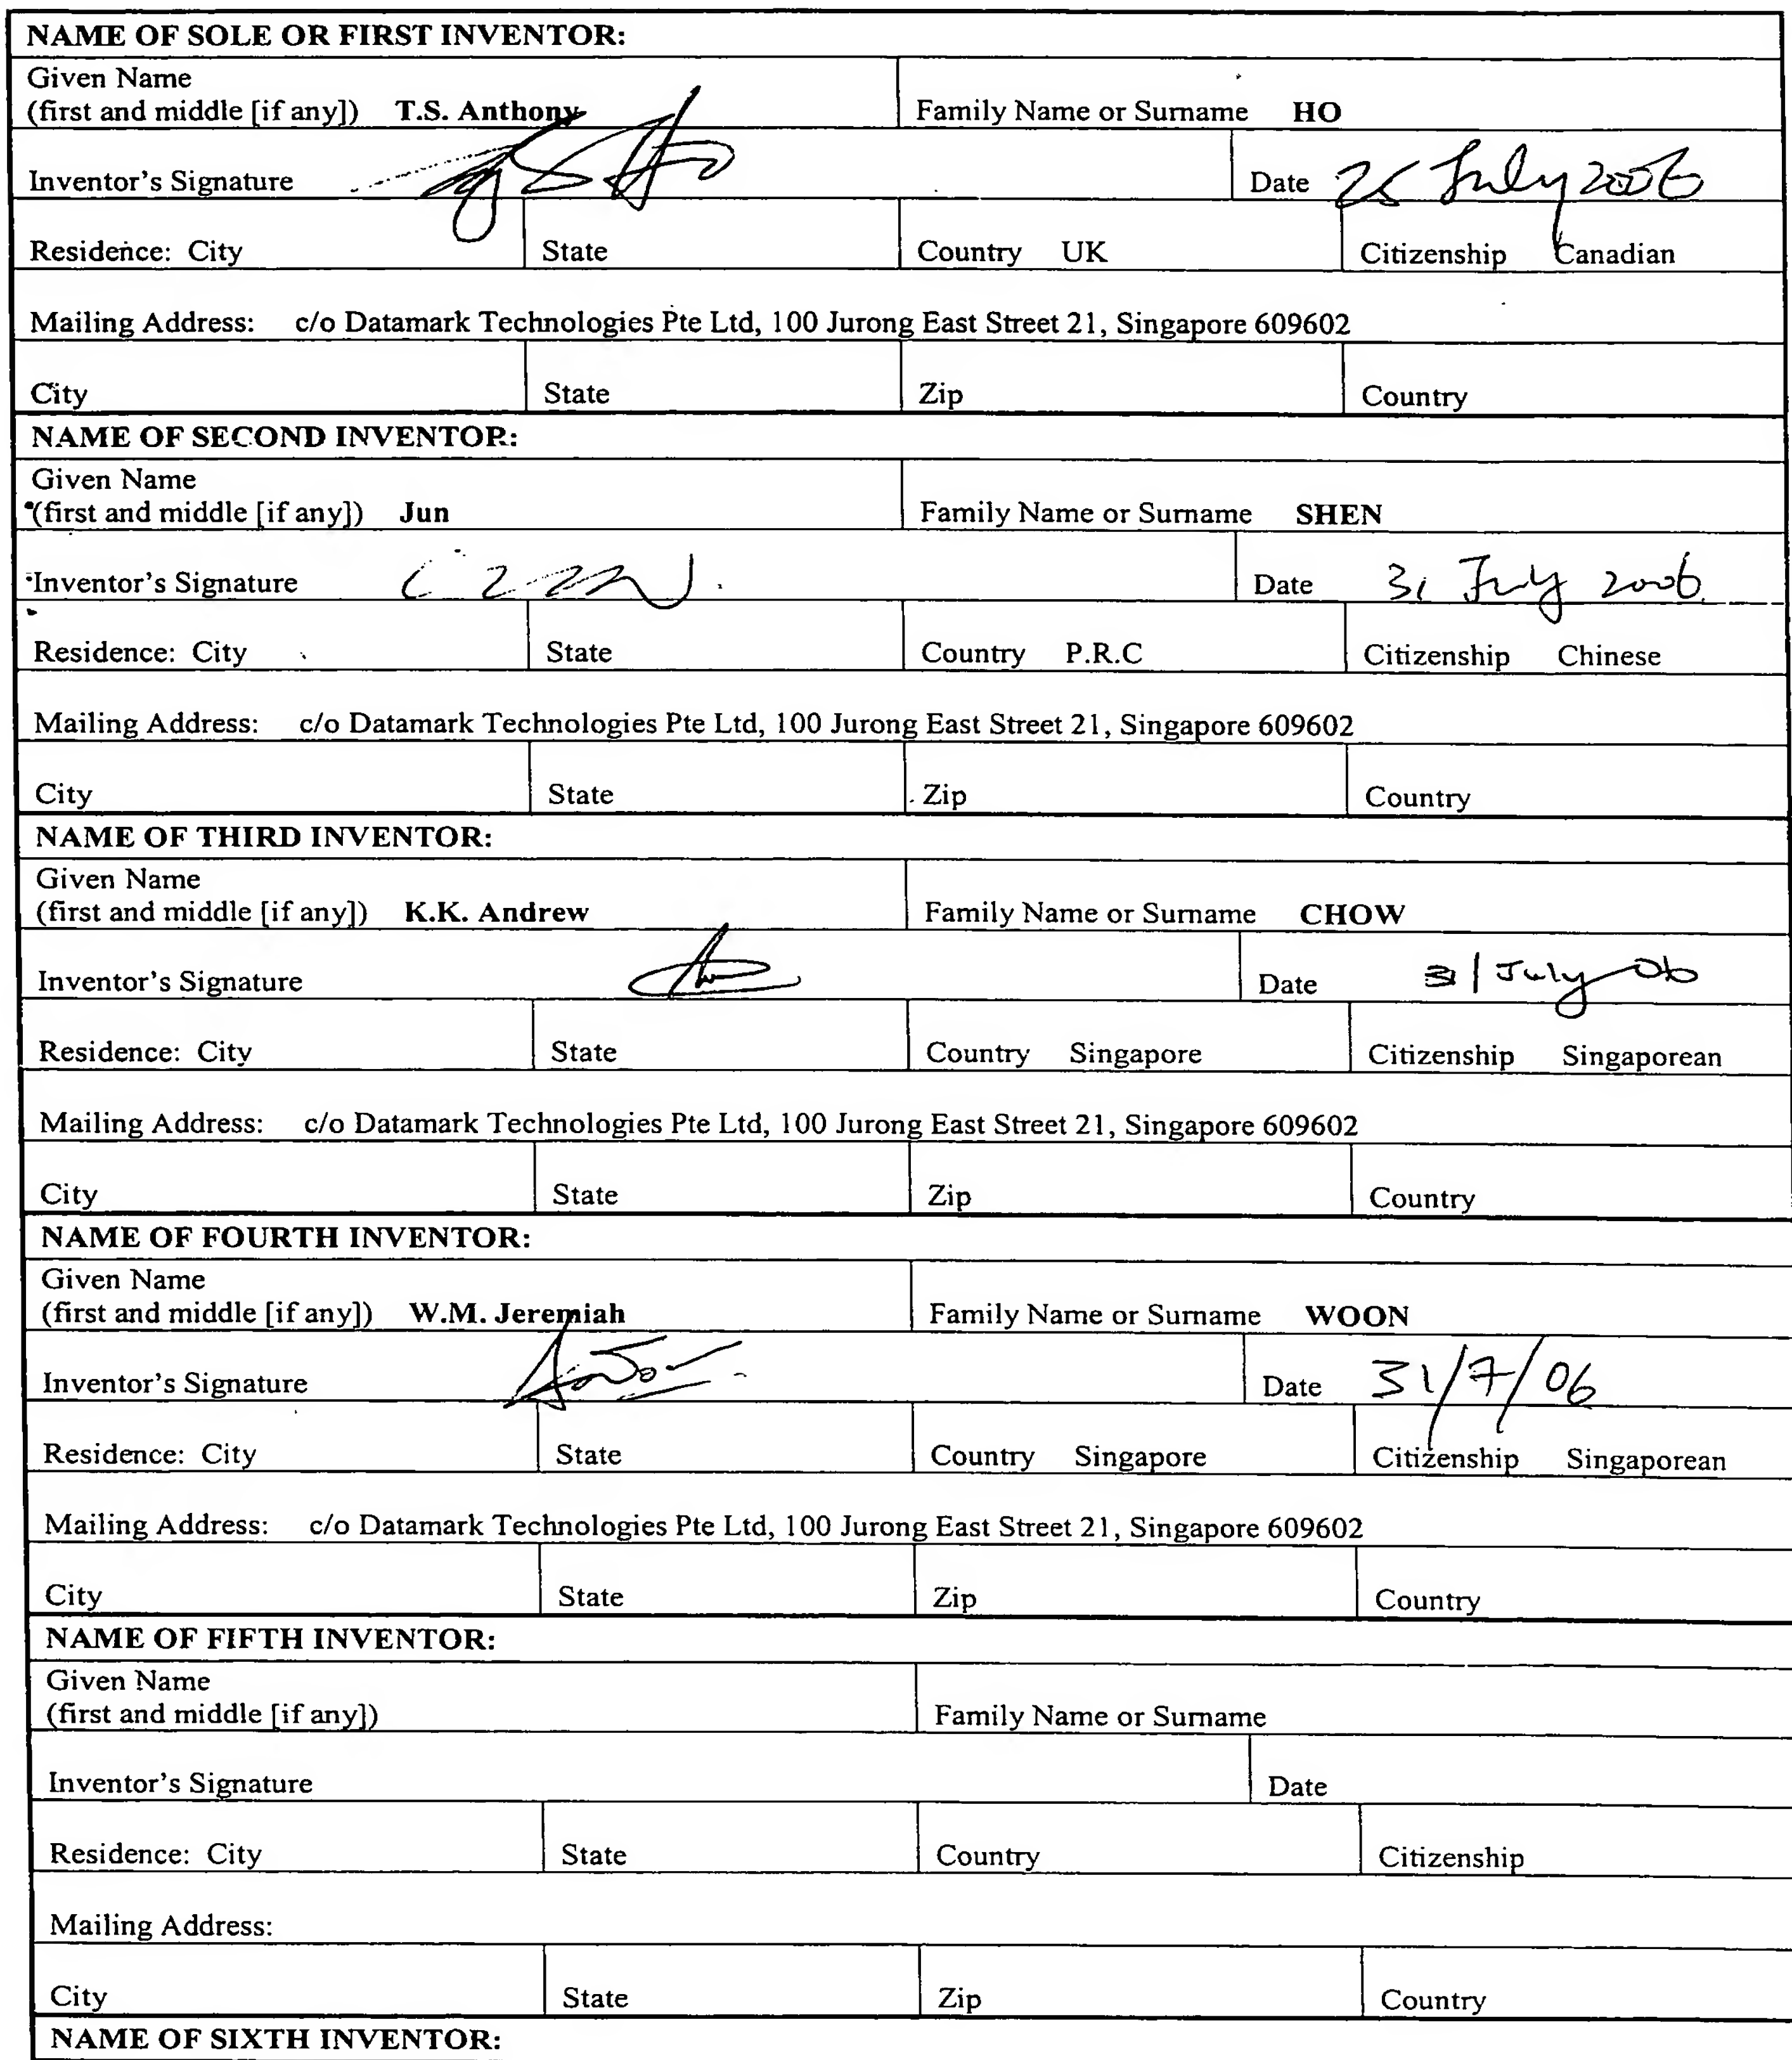 NAME OF SOLE OR FIRST INVENTOR:
Given Name
(first and middle [if any]) T.S. Anthony Family Name or Surname HO
Inventor's Signature Date 25 July 2006
Residence: City State Country UK Citizenship Canadian
Mailing Address: c/o Datamark Technologies Pte Ltd, 100 Jurong East Street 21, Singapore 609602
City State Zip Country
NAME OF SECOND INVENTOR:
Given Name
(first and middle [if any]) Jun Family Name or Surname SHEN
Inventor's Signature Date 31 July 2006
Residence: City State Country P.R.C Citizenship Chinese
Mailing Address: c/o Datamark Technologies Pte Ltd, 100 Jurong East Street 21, Singapore 609602
City State Zip Country
NAME OF THIRD INVENTOR:
Given Name
(first and middle [if any]) K.K. Andrew Family Name or Surname CHOW
Inventor's Signature Date 31 July 06
Residence: City State Country Singapore Citizenship Singaporean
Mailing Address: c/o Datamark Technologies Pte Ltd, 100 Jurong East Street 21, Singapore 609602
City State Zip Country
NAME OF FOURTH INVENTOR:
Given Name
(first and middle [if any]) W.M. Jeremiah Family Name or Surname WOON
Inventor's Signature Date 31/7/06
Residence: City State Country Singapore Citizenship Singaporean
Mailing Address: c/o Datamark Technologies Pte Ltd, 100 Jurong East Street 21, Singapore 609602
City State Zip Country
NAME OF FIFTH INVENTOR:
Given Name
(first and middle [if any]) Family Name or Surname
Inventor's Signature Date
Residence: City State Country Citizenship
Mailing Address:
City State Zip Country
NAME OF SIXTH INVENTOR: